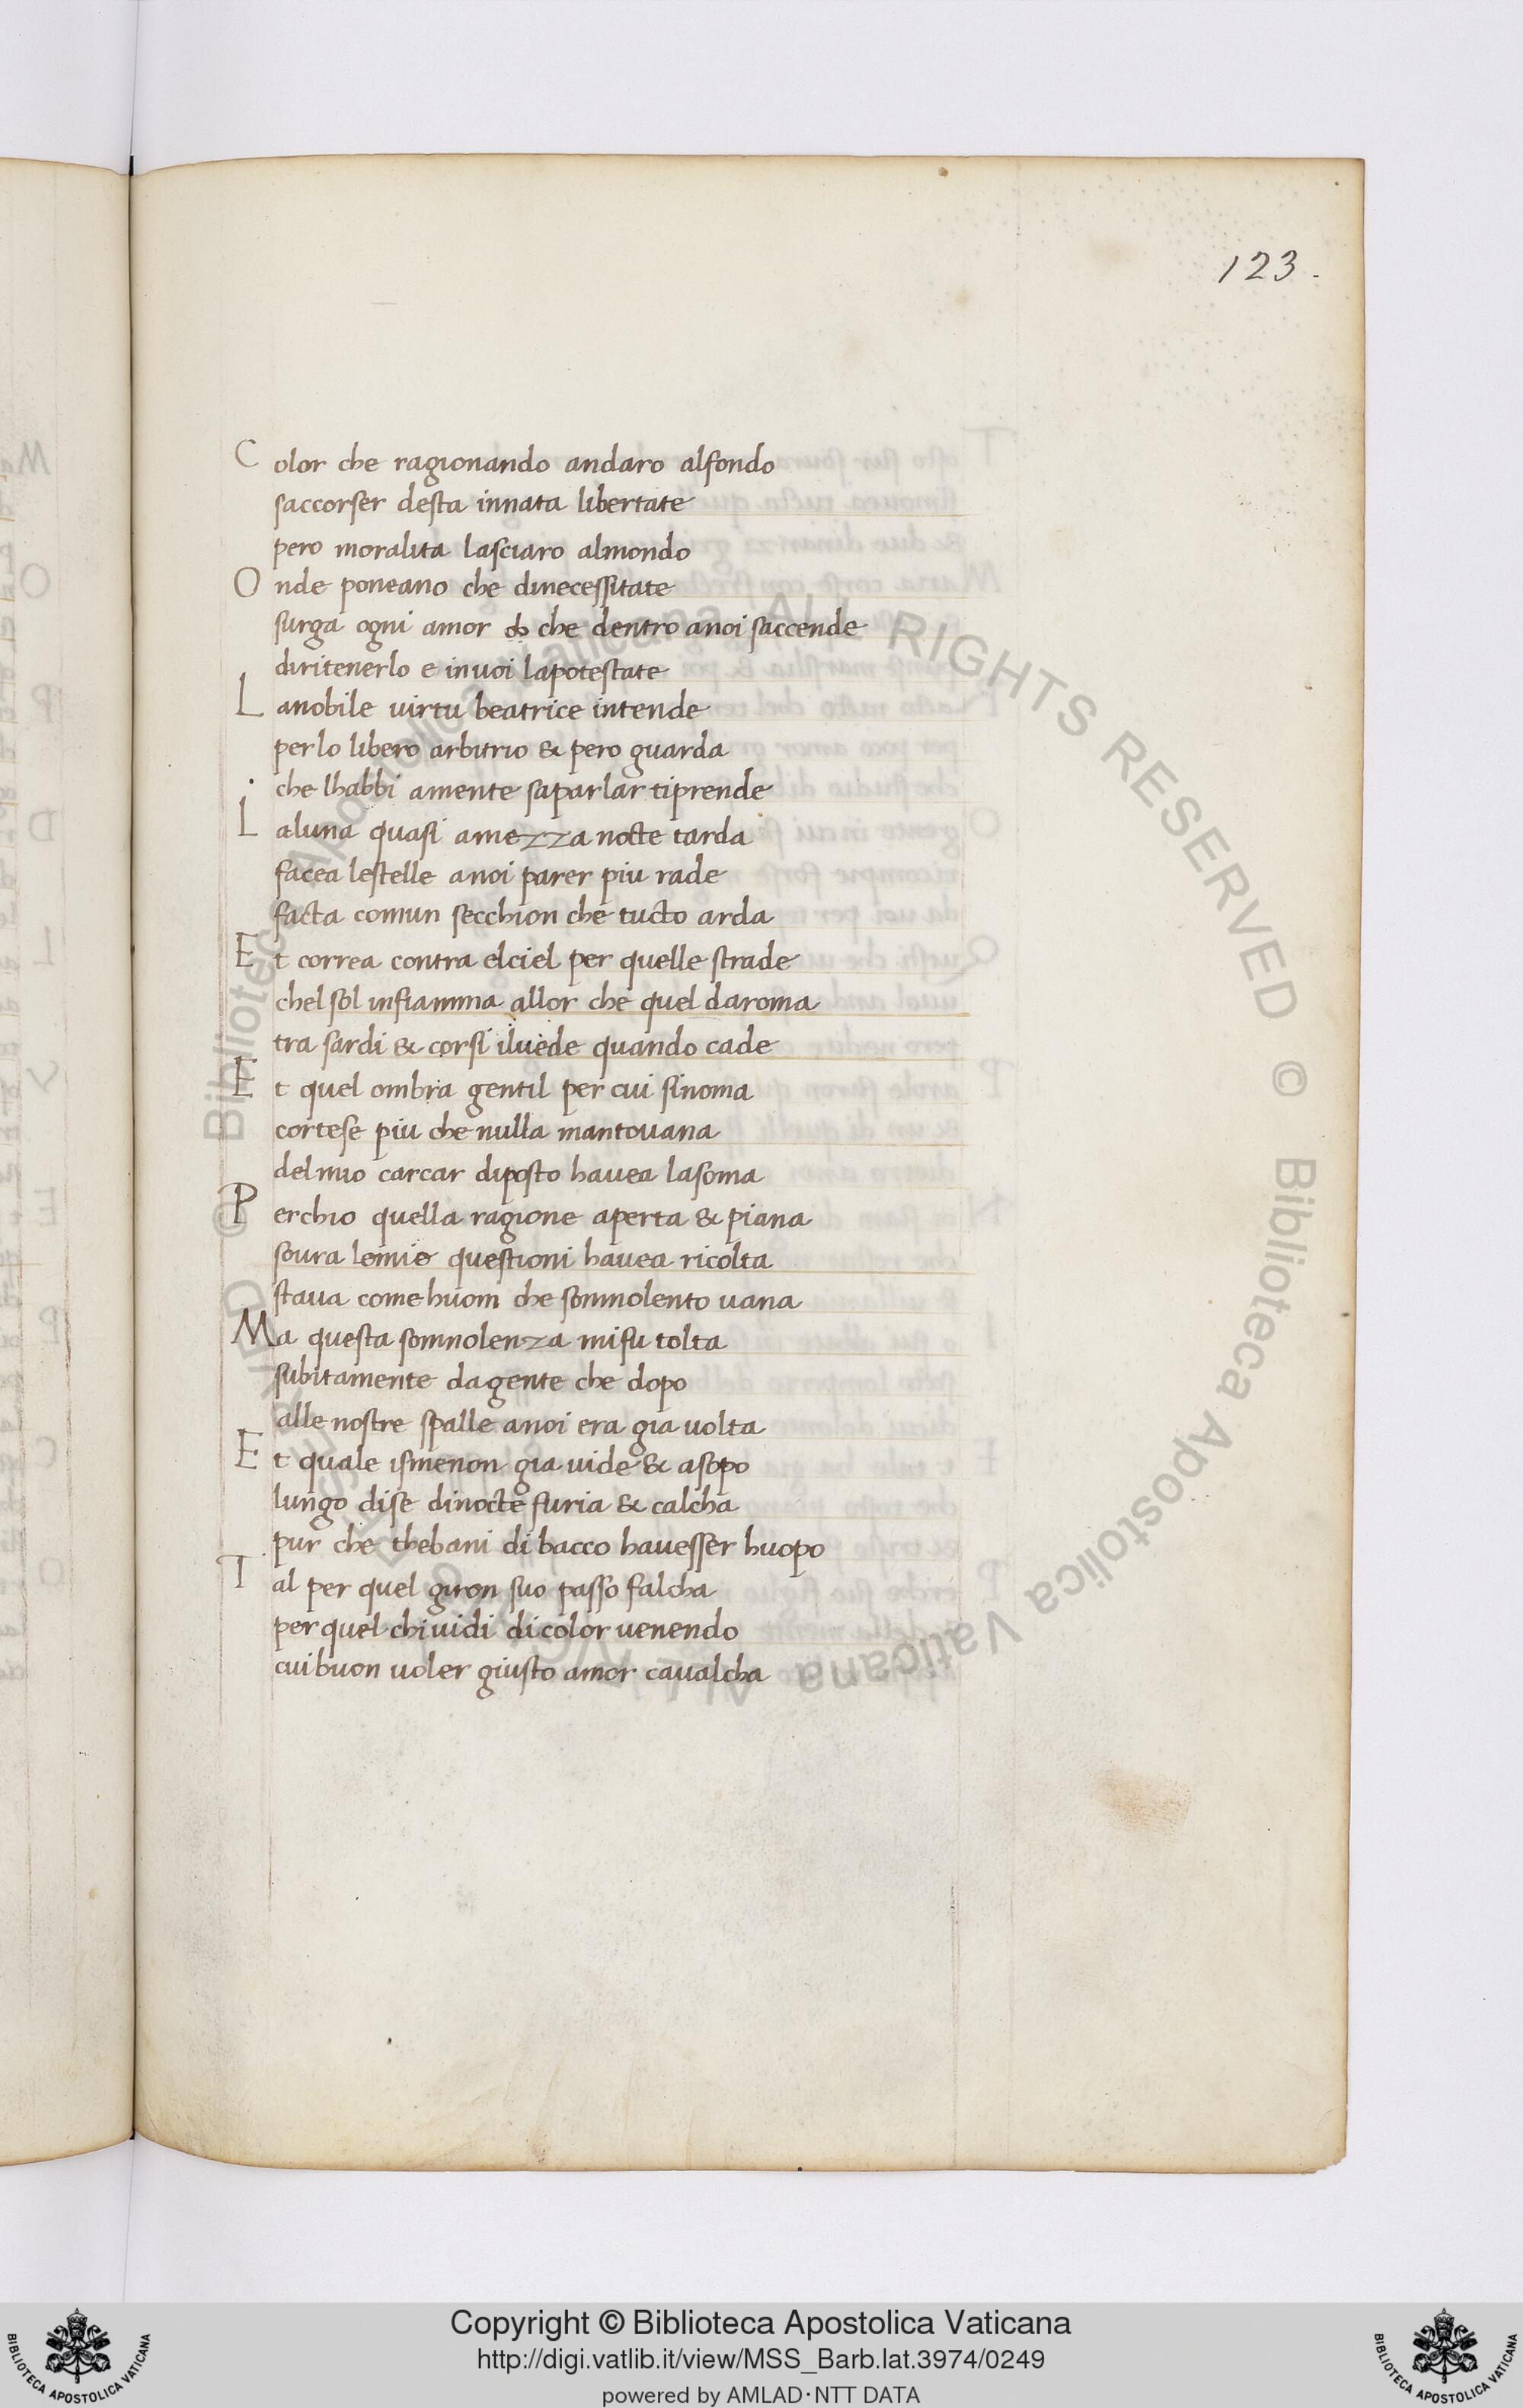 123.
Color che ragionando andaro alfondo
saccorser desta innata libertate
pero moralita lasciaro almondo
Onde poneano che dinecessitate
surga ogni amor che dentro anoi saccende
diritenerlo e inuoi lapotestate
Lanobile uirtu beatrice intende
perlo libero arbitrio & pero guarda
che lhabbi amente saparlar tiprende
Laluna quasi amezza nocte tarda
facea lestelle anoi parer piu rade
facta comun secchion che tucto arda
Et correa contra elciel per quelle strade
chel sol infiamma allor che quel daroma
tra sardi & corsi iluede quando cade
Et quel ombra gentil per cui sinoma
cortese piu che nulla mantouana
delmio carcar diposto hauea lasoma
Perchio quella ragione aperta & piana
soura lemie questioni hauea ricolta
staua come huom che sonnolento uana
Ma questa somnolenza mifu tolta
subitamente dagente che dopo
alle nostre spalle anoi era gia uolta
Et quale ismenon gia uide & asopo
lungo dise dinocte furia & calcha
pur che thebani di bacco hauesser huopo
Tal per quel giron suo passo falcha
per quel chiuidi di color uenendo
cui buon uoler giusto amor caualcha
© Biblioteca Apostolica Vaticana ALL RIGHTS RESERVED © Biblioteca Apostolica Vaticana ALL RIGHTS RESERVED
Copyright © Biblioteca Apostolica Vaticana
http://digi.vatlib.it/view/MSS_Barb.lat.3974/0249
powered by AMLAD·NTT DATA
BIBLIOTECA APOSTOLICA VATICANA
BIBLIOTECA APOSTOLICA VATICANA